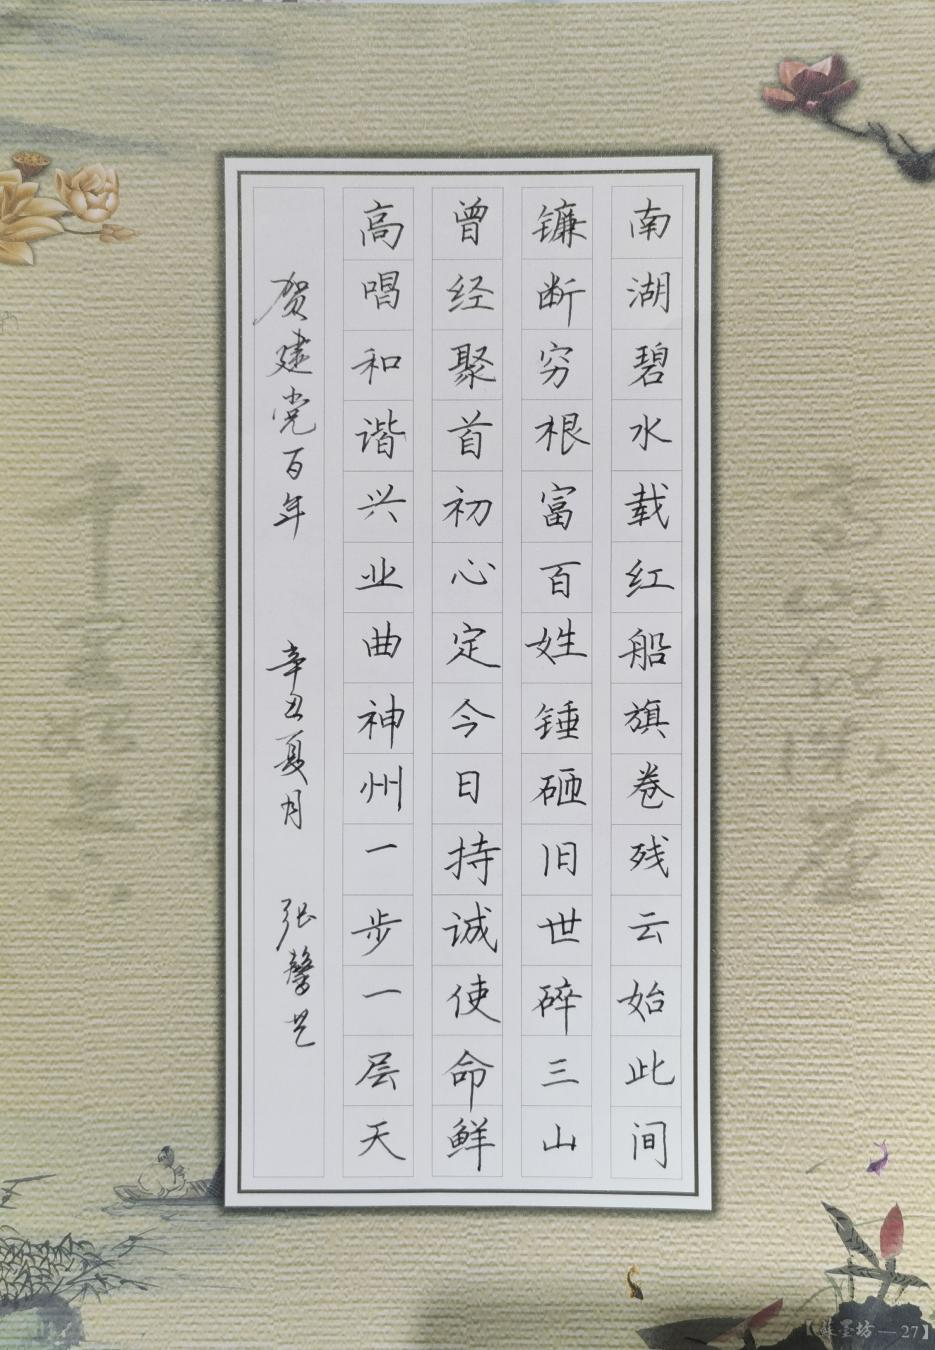 南湖碧水载红船旗卷残云始此间
镰断穷根富百姓锤砸旧世碎三山
曾经聚首初心定今日持诚使命鲜
高唱和谐兴业曲神州一步一层天
贺建党百年 辛丑夏月 张馨艺
墨坊—27】